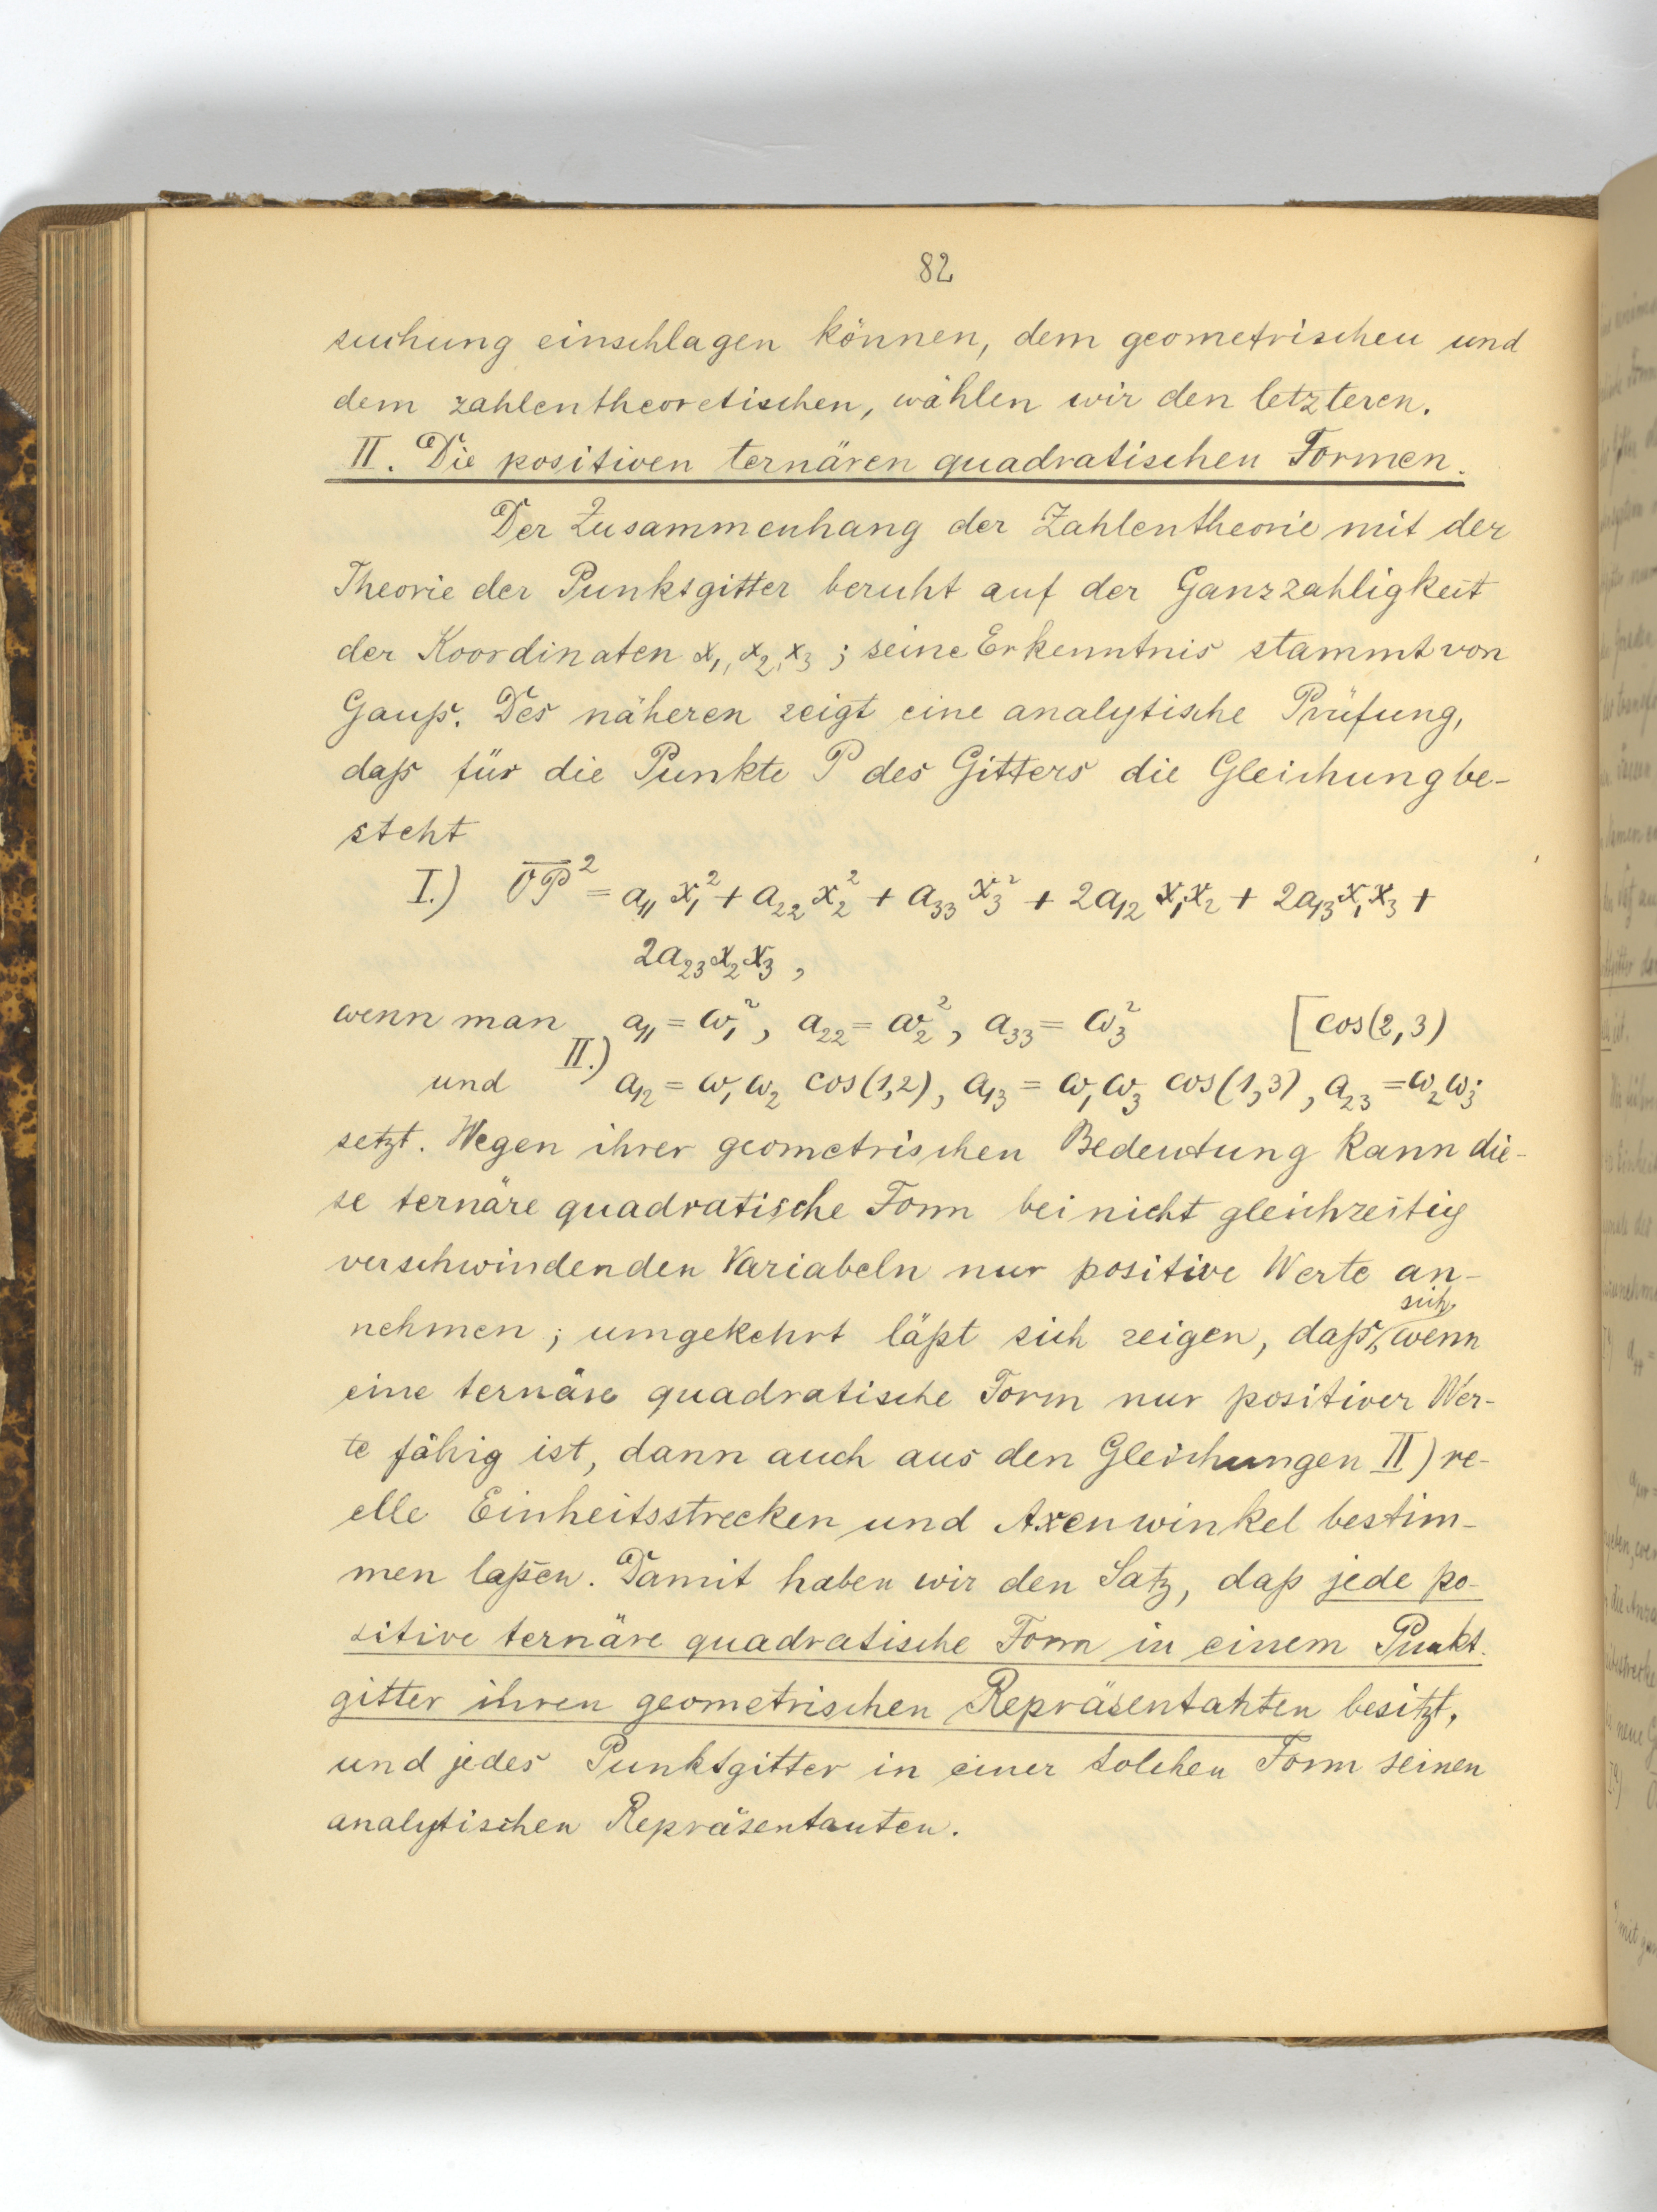 82
suchung einschlagen können, dem geometrischen und
dem zahlentheoretischen, wählen wir den letzteren.
II. Die positiven ternären quadratischen Formen.
Der Zusammenhang der Zahlentheorie mit der
Theorie der Punktgitter beruht auf der Ganzzahligkeit
der Koordinaten x₁, x₂, x₃ ; seine Erkenntnis stammt von
Gauß. Des näheren zeigt eine analytische Prüfung,
daß für die Punkte P des Gitters die Gleichung be-
steht
I.) O̅P̅² = a₁₁ x₁² + a₂₂ x₂² + a₃₃ x₃² + 2a₁₂ x₁x₂ + 2a₁₃ x₁x₃ +
2a₂₃ x₂x₃ ,
wenn man a₁₁ = ω₁², a₂₂ = ω₂², a₃₃ = ω₃² [cos(2,3)
II.)
und a₁₂ = ω₁ω₂ cos(1,2), a₁₃ = ω₁ω₃ cos(1,3), a₂₃ = ω₂ω₃·
setzt. Wegen ihrer geometrischen Bedeutung kann die-
se ternäre quadratische Form bei nicht gleichzeitig
verschwindenden Variabeln nur positive Werte an-
sich
nehmen ; umgekehrt läßt sich zeigen, daß, wenn
eine ternäre quadratische Form nur positiver Wer-
te fähig ist, dann auch aus den Gleichungen II) re-
elle Einheitsstrecken und Axenwinkel bestim-
men laßen. Damit haben wir den Satz, daß jede po-
sitive ternäre quadratische Form in einem Punkt-
gitter ihren geometrischen Repräsentanten besitzt,
und jedes Punktgitter in einer solchen Form seinen
analytischen Repräsentanten.